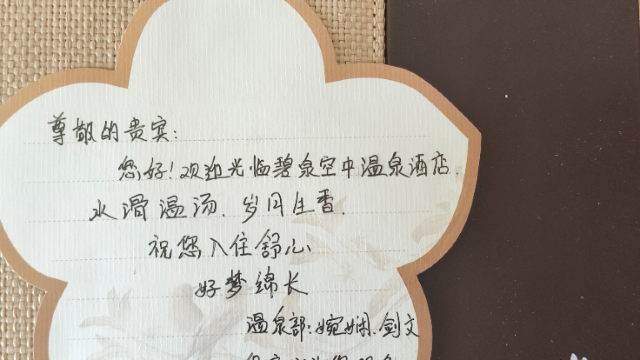 尊敬的贵宾:
您好!欢迎光临碧泉空中温泉酒店.
水滑温汤.岁月生香.
祝您入住舒心
好梦绵长
温泉部:婉娴.剑文